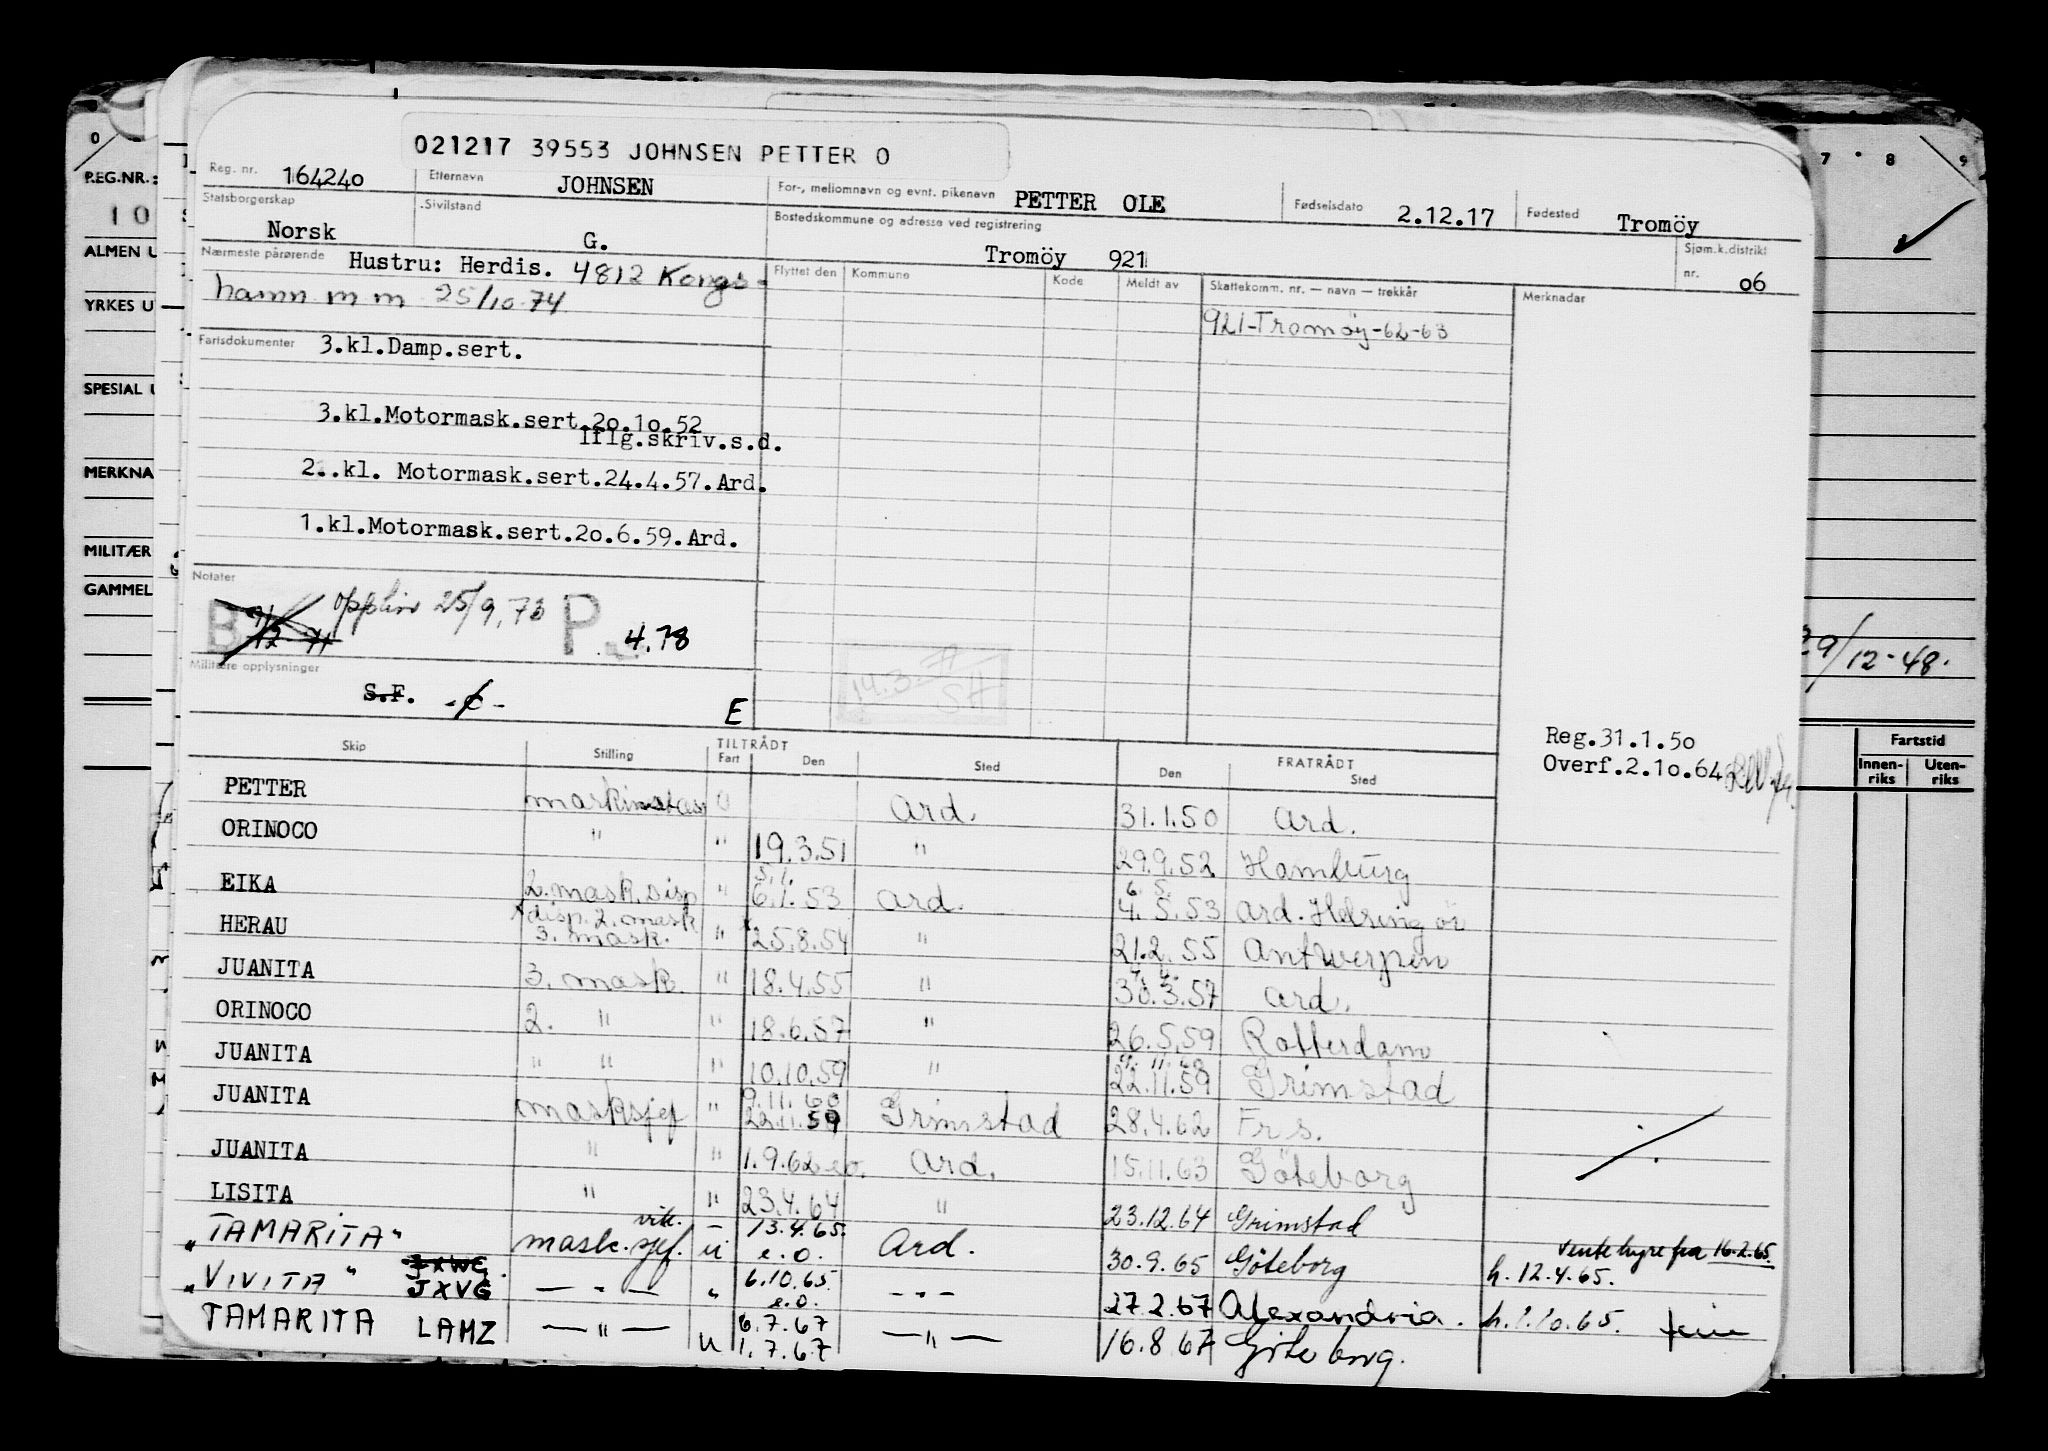 021217 39553 JOHNSEN PETTER O
Reg. nr. 164240 Etternavn JOHNSEN For-, mellomnavn og evnt. pikenavn PETTER OLE Fødselsdato 2.12.17 Fødested Tromöy
Statsborgerskap Norsk Sivilstand G. Bostedskommune og adresse ved registrering Tromöy 921 Sjøm.k.distrikt nr. 06
Nærmeste pårørende Hustru: Herdis. 4812 Kongs-
hamn m m 25/10-74
Flyttet den Kommune Kode Meldt av Skattekomm. nr. — navn — trekkår Merknader
921-Tromöy-62-63
Fartsdokumenter 3.kl.Damp.sert.
3.kl.Motormask.sert.20.10.52
iflg.skriv.s.d.
2..kl. Motormask.sert.24.4.57.Ard.
1.kl.Motormask.sert.20.6.59.Ard.
Notater
B 25/9,73 P 4.78
Militære opplysninger
S.F. E
14.3
SH
Reg.31.1.50
Overf.2.10.64
Skip Stilling TILTRÅDT Fart Den Sted FRATRÅDT Den Sted
PETTER Ard. 31.1.50 Ard.
ORINOCO " " 19.3.51 " 29.9.52 Hamburg
EIKA 2.mask.disp " 5.1. 6.1.53 Ard. 6.5. 4.5.53 Ard. Helsingör
HERAU disp. 2. mask 3. mask. " 25.8.54 " 21.2.55 Antwerpen
JUANITA 3. mask. " 18.4.55 " 30.3.57 Ard.
ORINOCO 2. " " 18.6.57 " 26.5.59 Rotterdam
JUANITA " " " 10.10.59 " 22.11.59 Grimstad
JUANITA masksjef " 9.11.60 22.11.59 Grimstad 28.4.62 Frs.
JUANITA " " 1.9.62 e.o. Ard. 15.11.63 Göteborg
LISITA " " 23.4.64 " 23.12.64 Grimstad
„TAMARITA" vik. mask.sjef. u 13.4.65. e.o. Ard. 30.9.65 Göteborg h. 12.4.65. Ventehyre fra 16.2.65.
„VIVITA" JXWG. JXVG — " — " 6.10.65 e.o. — " — 27.2.67 Alexandria. h. 1.10.65. ferie
TAMARITA LAMZ — " — u 6.7.67 1.7.67 — " — 16.8.67 Göteborg.
0
REG.NR.:
10
ALMEN U
YRKES U
SPESIAL U
MERKNA
MILITÆR
GAMMEL
7 8 9
29/12-48.
Fartstid
Innen-riks Uten-riks